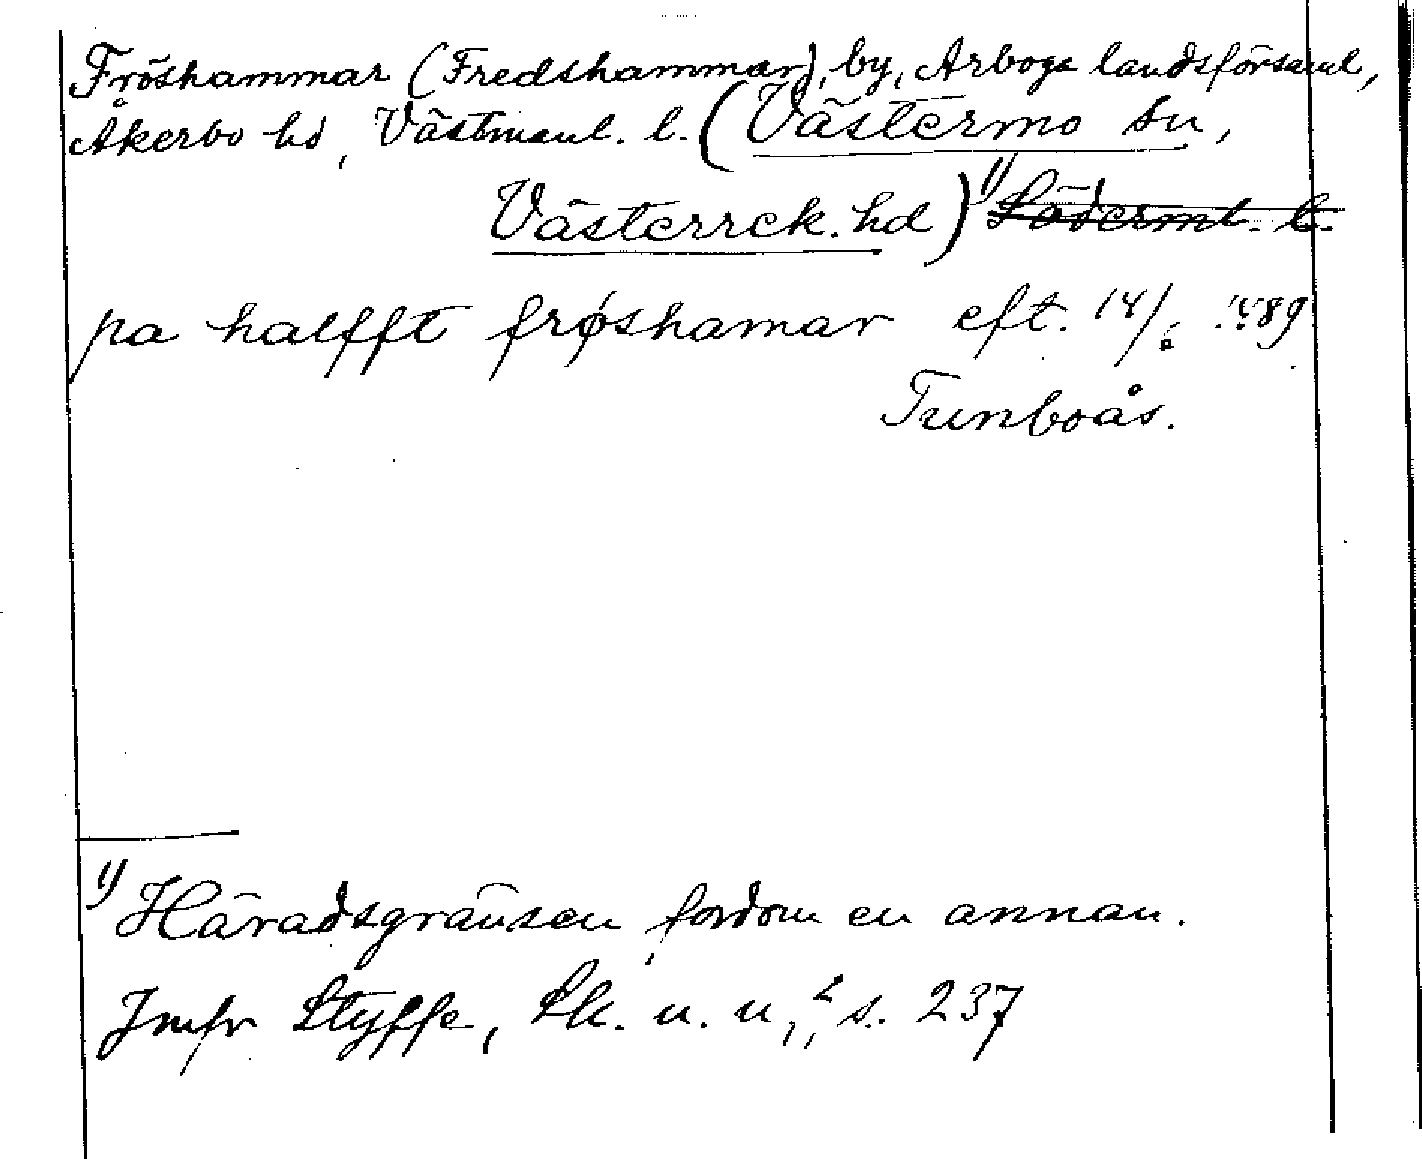 Fröshammar (Fredshammar), by, Arboga landsförsaml,
Åkerbo hd, Västmanl. l. (Västermo sn,
Västerrek. hd) 1) Söderml. l.
pa halfft frøshamar eft. 14/6 1489
Tunboås.
1) Häradsgränsen fordom en annan.
Jmfr Styffe, Sk. u. u,², s. 237